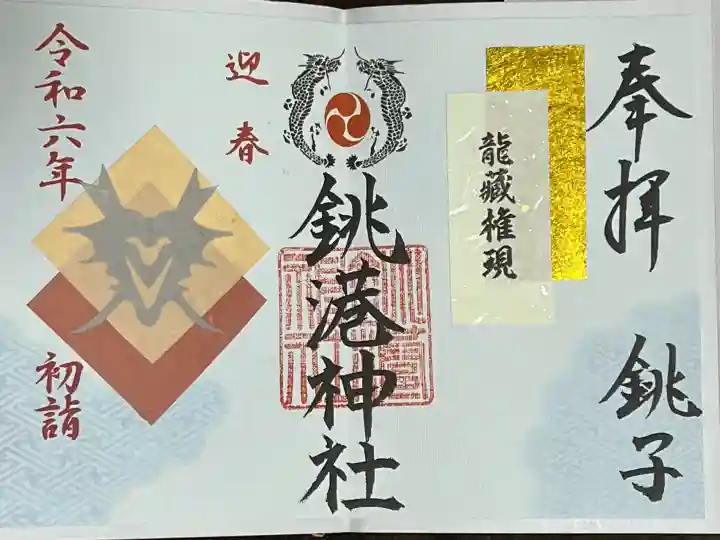 奉拝
銚子
龍藏権現
銚港神社
迎春
令和六年
初詣